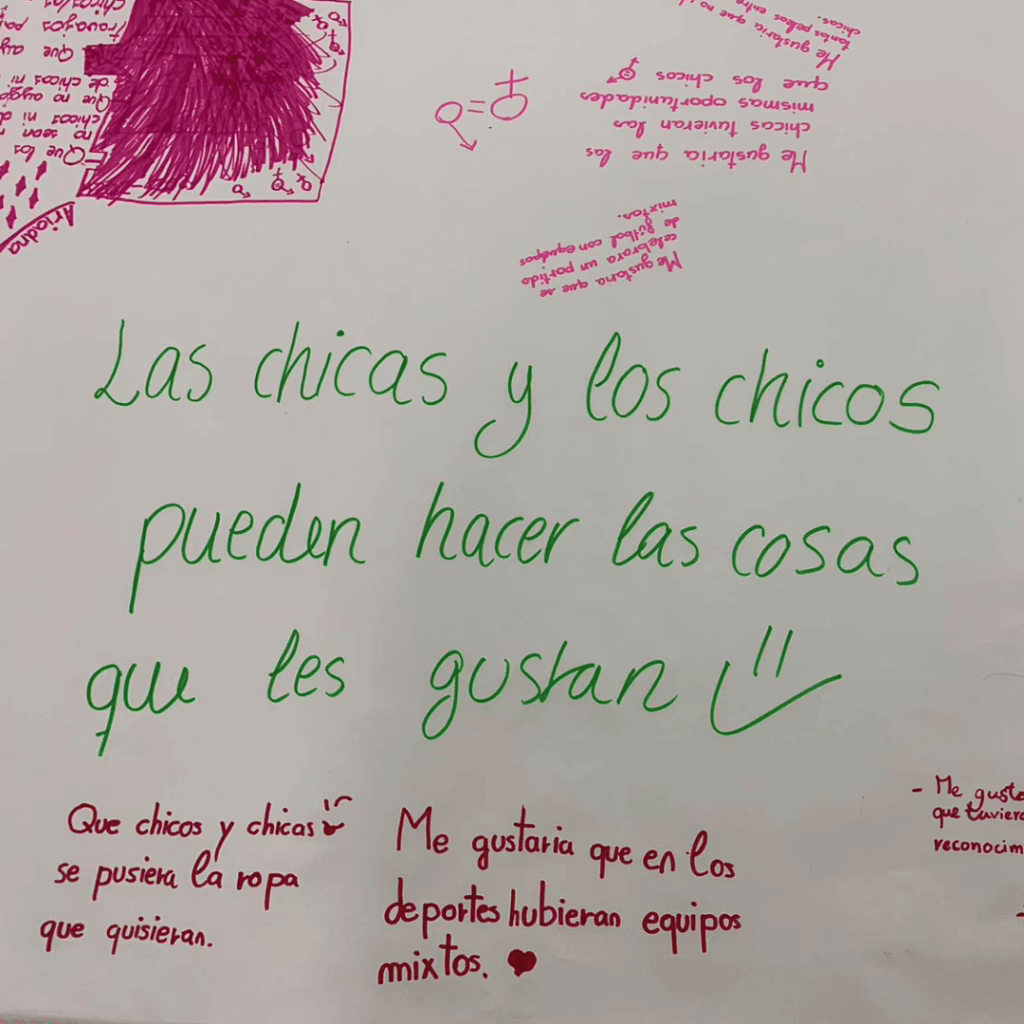 Las chicas y los chicos
pueden hacer las cosas
que les gustan
Que chicos y chicas
se pusiera la ropa
que quisieran.
Me gustaria que en los
deportes hubieran equipos
mixtos.
- Me guste
que tuviera
reconocim
Me gustaria que se
celebrara un partido
de futbol con equipos
mixtos.
Me gustaria que las
chicas tuvieran las
mismas oportunidades
que los chicos
Me gustaria que no
tantas peleas entre
chicas.
Ariadna
Que los
no sean
chicos ni d
Que no
de chicos ni
Que ay
travajos par
chicos/as